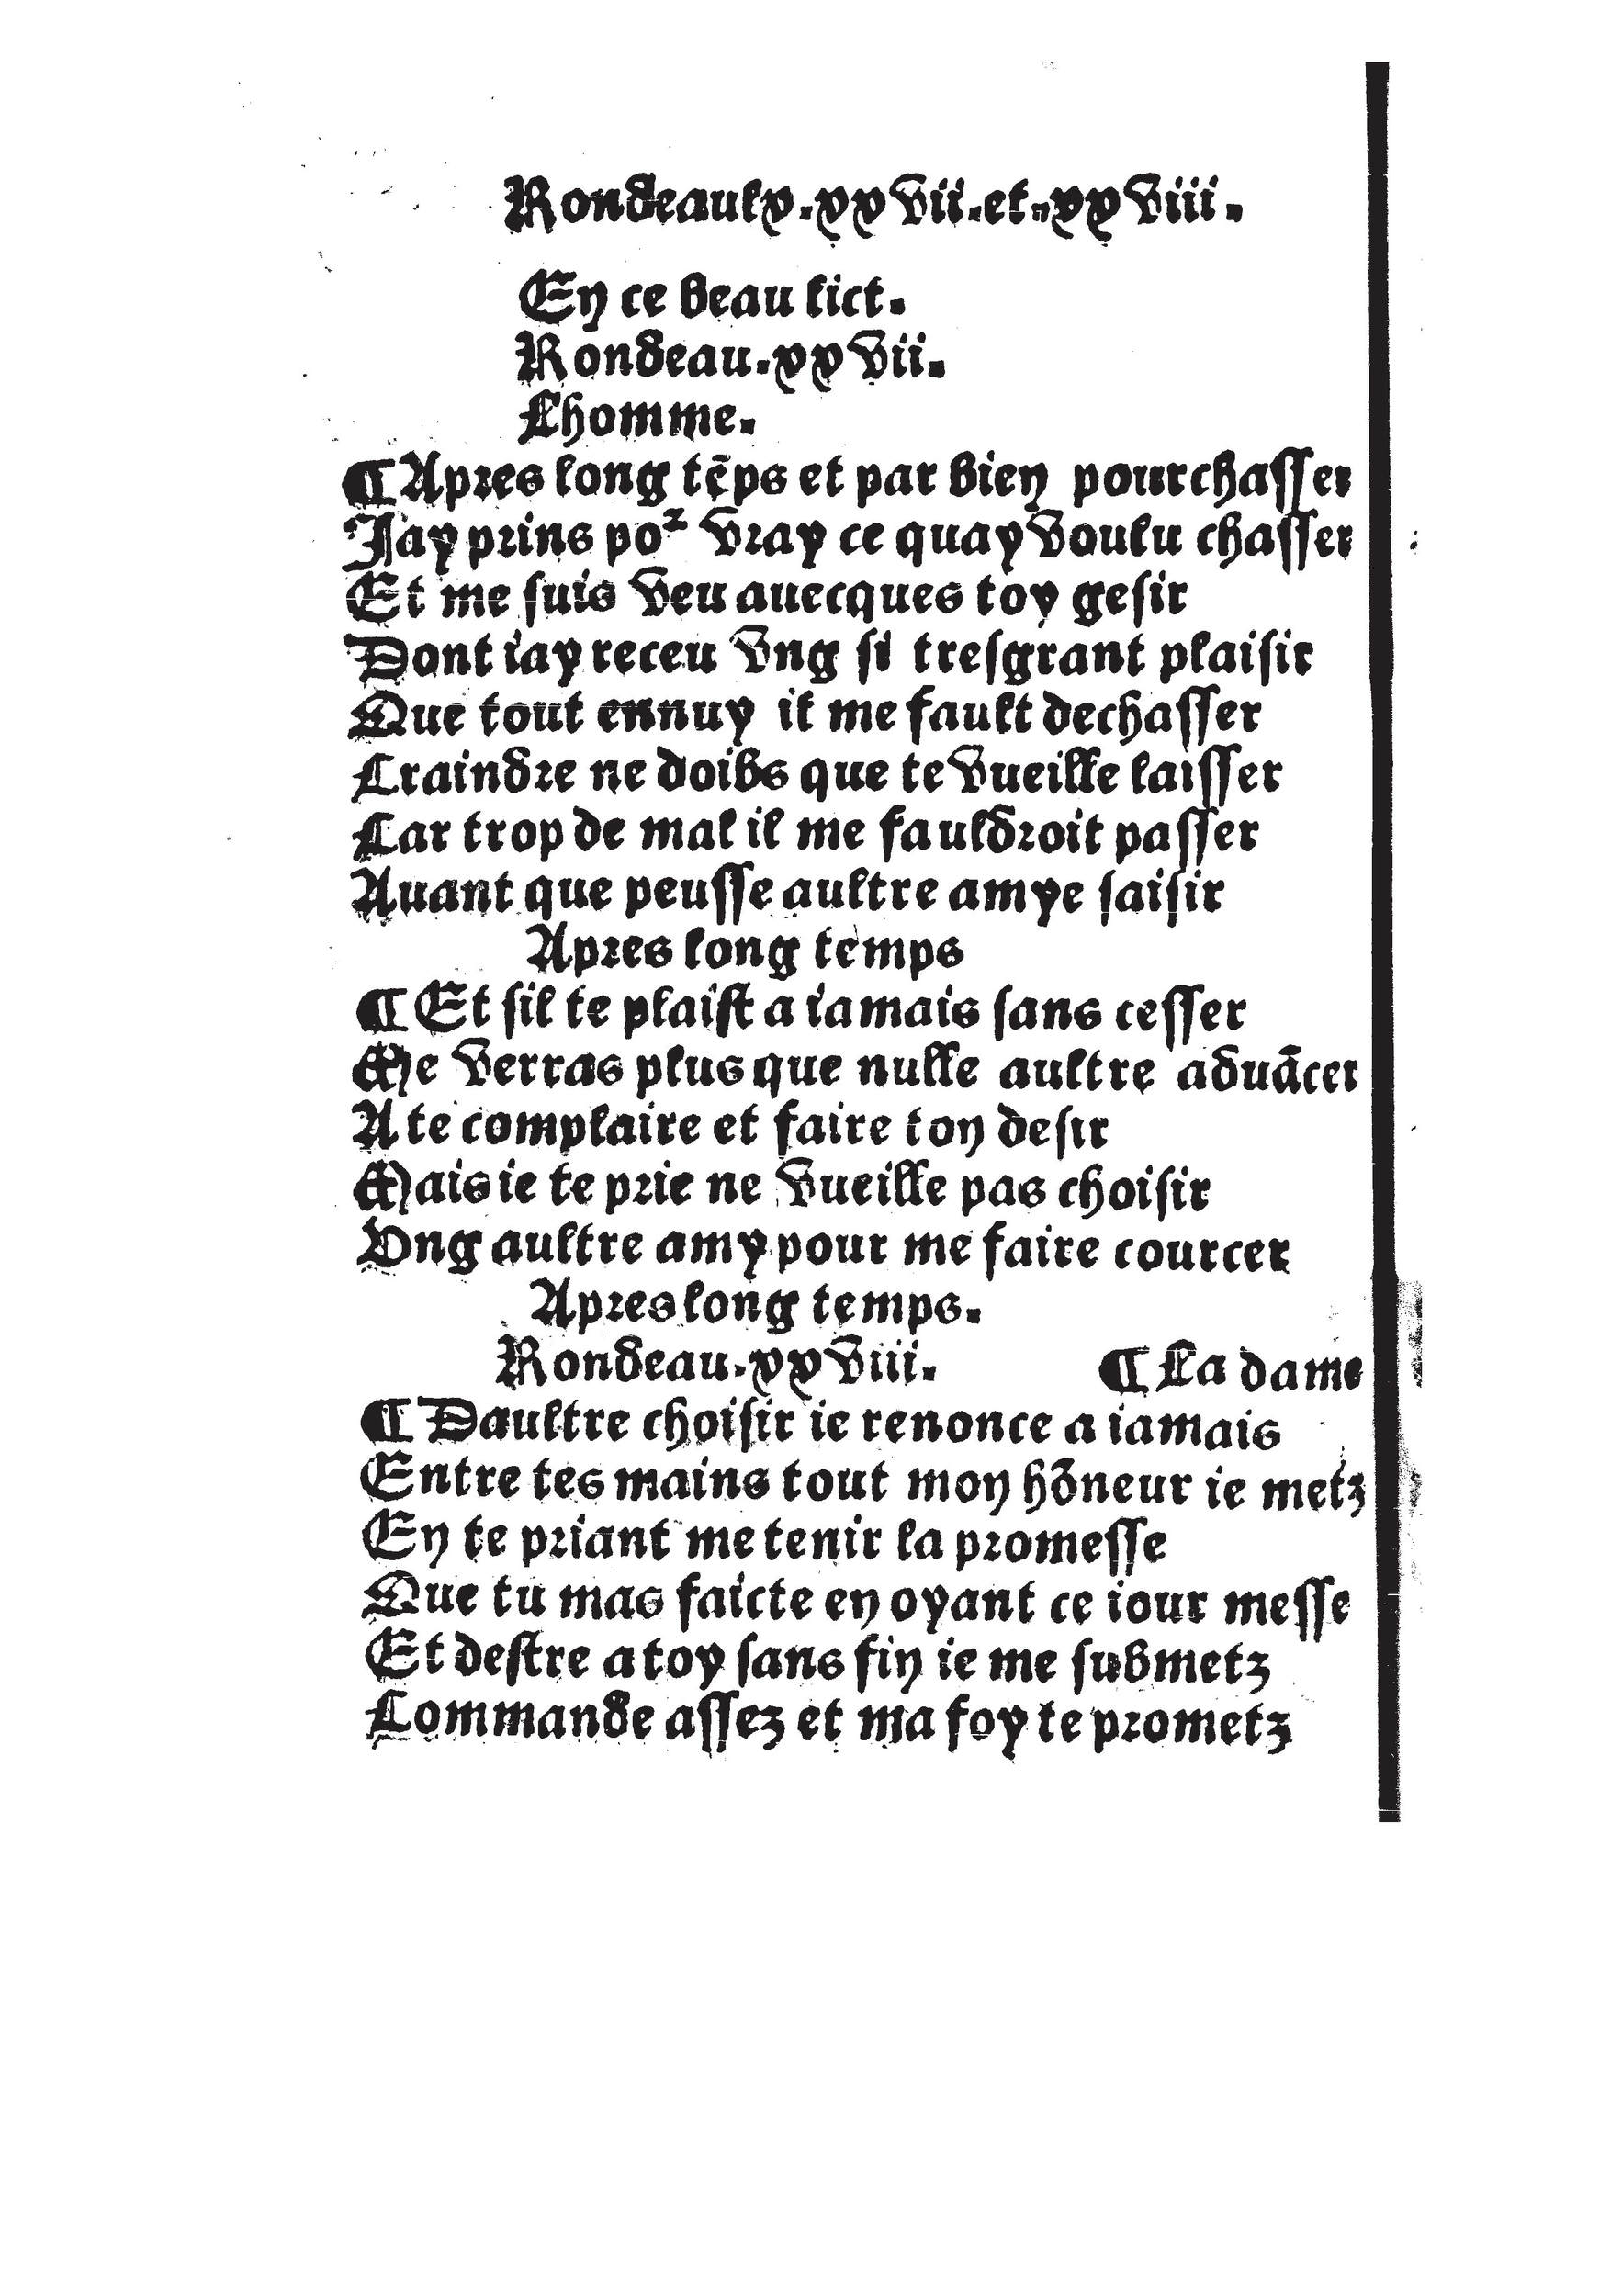 Rondeaulx.xxvii.et.xxviii.
En ce beau lict.
Rondeau.xxvii.
Lhomme.
¶Apres long tẽps et par bien pourchasser
Jay prins poᷣ vray ce quay voulu chasser
Et me suis veu auecques toy gesir
Dont iay receu vng si tresgrant plaisir
Que tout ennuy il me fault dechasser
Craindre ne doibs que te vueille laisser
Car trop de mal il me fauldroit passer
Auant que peusse aultre amye saisir
Apres long temps
¶Et sil te plaist a iamais sans cesser
Me verras plus que nulle aultre aduãcer
A te complaire et faire ton desir
Mais ie te prie ne vueille pas choisir
Vng aultre amy pour me faire courcer
Apres long temps.
Rondeau.xxviii. ¶La dame
¶Daultre choisir ie renonce a iamais
Entre tes mains tout mon hõneur ie metz
En te priant me tenir la promesse
Que tu mas faicte en oyant ce iour messe
Et destre a toy sans fin ie me submetz
Commande assez et ma foy te prometz